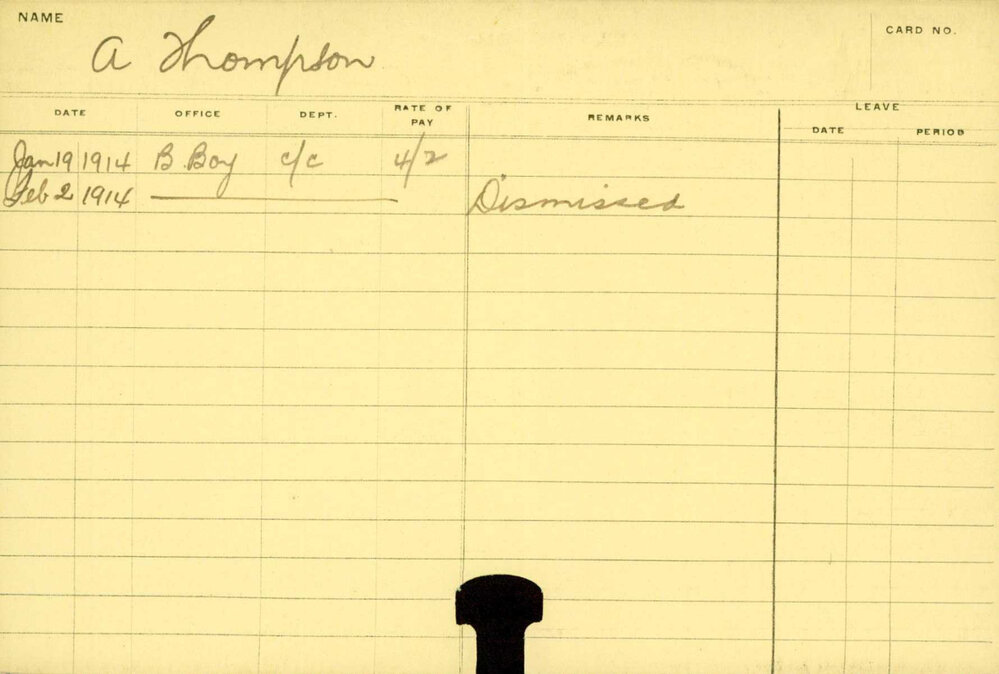 NAME
CARD NO.
A Thompson
DATE OFFICE DEPT. RATE OF PAY REMARKS LEAVE
DATE PERIOD
Jan 19 1914 B. Boy c/c 4/2
Feb 2 1914 Dismissed